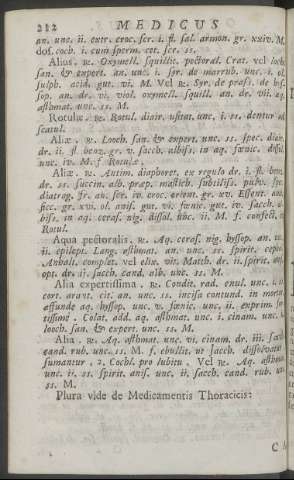 212 MEDICUS
an. unc. ii. extr. croc. scr. i. fl. sal. armon. gr. xxiv. M.
dos. coch. i. cum sperm. cet. scr. ss.
Alius. ℞. Oxymell. squillit. pectoral. Crat. vel looch
san. & expert. an. unc. i. syr. de marrub. unc. i. ol.
sulph. acid. gut. vi. M. Vel ℞ Syr. de prass. de hys
sop. an. dr. vi. viol. oxymell. squill. an. dr. vii. aq.
asthmat. unc. ss. M.
Rotulæ. ℞. Rotul. diair. usitat. unc. i. ss. dentur ad
scatul.
Aliæ. ℞. Looch. san. & expert. unc. ss. spec. diair.
dr. ii. fl. benz. gr. v. sacch. albiss. in aq. fœnic. dissol.
unc. iv. M. f Rotulæ.
Aliæ. ℞. Antim. diaphoret. ex regulo dr. i. fl. benz.
dr. ss. succin. alb. præp. mastich. subtiliss. pulv. spec.
diatrag. fr. an. scr. iv. croc. orient. gr. xv. Essent. anis.
sicc. gr. xvi. ol. anis. gut. vi. fœnic. gut. iv. sacch. al
biss. in aq. ceras. nig. dissol. unc. ii. M. f. confect.
Rotul.
Aqua pectoralis. ℞. Aq. ceras. nig. hyssop. an. unc.
ii. epilept. Lang. asthmat. an. unc. ss. spirit.
Anhalt. complet. vel elix. vit. Matth. dr. ii. spirit.
opt. dr. ii. sacch. cand. alb. unc. ss. M.
Alia expertissima. ℞. Condit. rad. enul. unc. i.
cort. arant. cit. an. unc. ss. incisis contund. in mortar.
affunde aq. hyssop. unc. v. fœnic. unc. ii. exprim. for
tissime. Colat. add. aq. asthmat. unc. i. cinam. unc.
looch. san. & expert. unc. ss. M.
Alia. ℞. Aq. asthmat. unc. vi. cinam. dr. iii. sacch.
cand. rub. unc. ss. M. f. ebullit. ut sacch. dissolvatur
sumantur. 2. Cochl. pro lubitu. Vel ℞. Aq. asthmat.
unc. ii. ss. spirit. anis. unc. ii. sacch. cand. rub. unc.
ss. M.
Plura vide de Medicamentis Thoracicis: